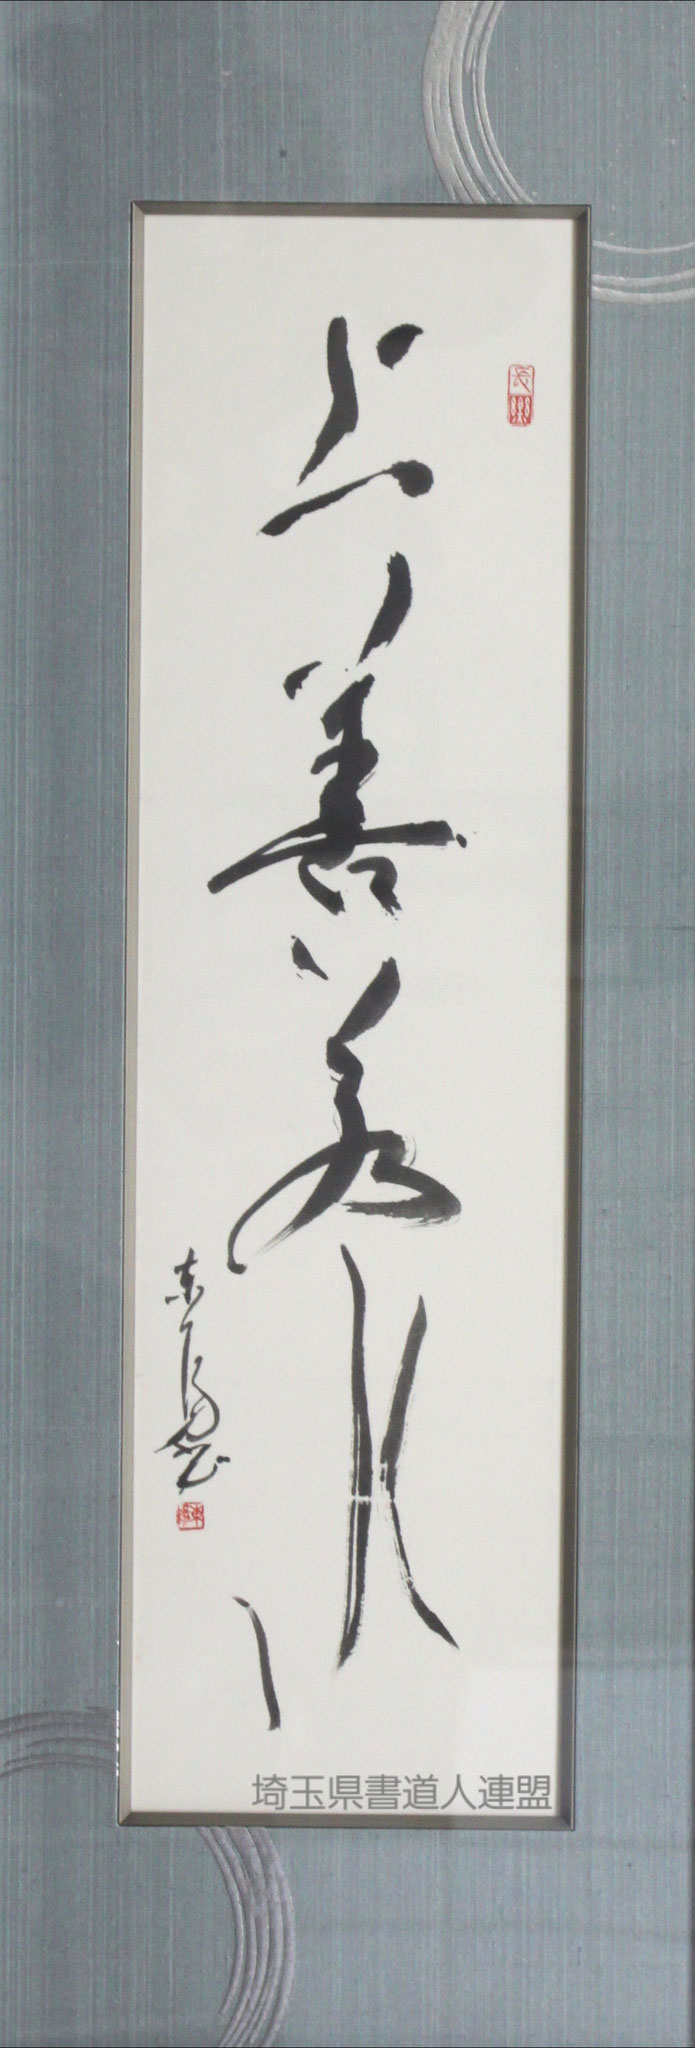 上善若水
埼玉県書道人連盟